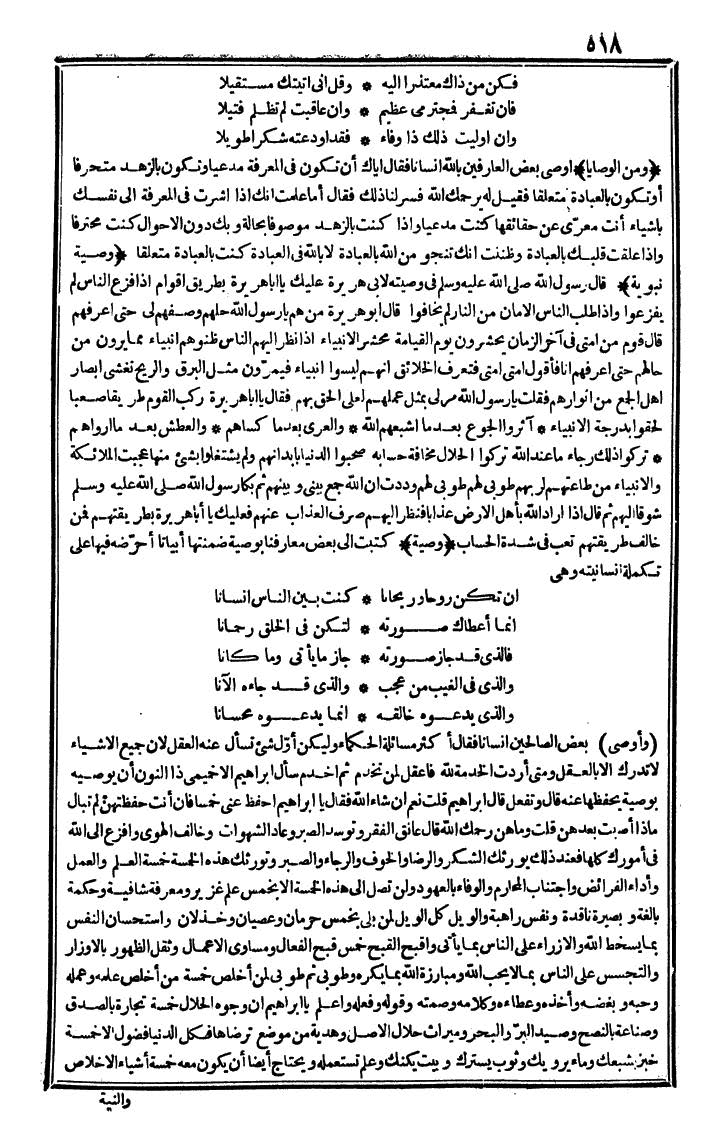 ٥١٨
فكن من ذاك معتذرا اليه * وقل انى اتيتك مستقيلا
فان تغفر فجترمى عظيم * وان عاقبت لم تظلم فتيلا
وان اوليت ذلك ذا وفاء * فقد اودعته شكرا طويلا
﴿ومن الوصايا﴾ اوصى بعض العارفين بالله انسانا فقال اياك أن تكون فى المعرفة مدعيا وتكون بالزهد متحرفا
أوتكون بالعبادة متعلقا فقيل له يرحمك الله فسر لنا ذلك فقال أما علمت انك اذا اشرت فى المعرفة الى نفسك
باشياء أنت معرّى عن حقائقها كنت مدعيا واذا كنت بالزهد موصوفا بحالة وبك دون الاحوال كنت محترفا
واذا علقت قلبك بالعبادة وظننت انك تنجو من الله بالعبادة لا بالله فى العبادة كنت بالعبادة متعلقا ﴿وصية
نبوية﴾ قال رسول الله صلى الله عليه وسلم فى وصيته لابى هريرة عليك يا اباهريرة بطريق اقوام اذا فزع الناس لم
يفزعوا واذا طلب الناس الامان من النار لم يخافوا قال ابوهريرة من هم يارسول الله حلهم وصفهم لى حتى اعرفهم
قال قوم من امتى فى آخر الزمان يحشرون يوم القيامة محشر الانبياء اذا نظر اليهم الناس ظنوهم انبياء مما يرون من
حالهم حتى اعرفهم انا فأقول امتى امتى فتعرف الخلائق انهم ليسوا انبياء فيمرّون مثل البرق والريح تغشى ابصار
اهل الجمع من انوارهم فقلت يارسول الله مرلى بمثل عملهم لعلى الحق بهم فقال يا اباهريرة ركب القوم طريقا صعبا
لحقوا بدرجة الانبياء * آثروا الجوع بعدما اشبعهم الله * والعرى بعدما كساهم * والعطش بعد ما ارواهم
* تركوا ذلك رجاء ما عند الله تركوا الحلال مخافة حسابه صحبوا الدنيا بابدانهم ولم يشتغلوا بشئ منها عجبت الملائكة
والانبياء من طاعتهم لربهم طوبى لهم طوبى لهم وددت ان الله جمع بينى وبينهم ثم بكا رسول الله صلى الله عليه وسلم
شوقا اليهم ثم قال اذا اراد الله بأهل الارض عذابا فنظر اليهم صرف العذاب عنهم فعليك يا أباهريرة بطريقتهم فمن
خالف طريقتهم تعب فى شدة الحساب ﴿وصية﴾ كتبت الى بعض معارفنا بوصية ضمنتها أبياتا أحرّضه فيها على
تكملة انسانيته وهى
ان تكن روحا وريحانا * كنت بين الناس انسانا
انما أعطاك صورته * لتكن فى الخلق رحمانا
فالذى قد جاز صورته * جاز ما يأتى وما كانا
والذى فى الغيب من عجب * والذى قد جاءه الآنا
والذى يدعوه خالقه * انما يدعوه محسانا
(وأوصى) بعض الصالحين انسانا فقال أكثر مسائلة الحكماء وليكن أوّل شئ تسأل عنه العقل لان جميع الاشياء
لا تدرك الا بالعقل ومتى أردت الخدمة لله فاعقل لمن تخدم ثم اخدم سأل ابراهيم الاخيمى ذا النون أن يوصيه
بوصية يحفظها عنه قال وتفعل قال ابراهيم قلت نعم ان شاء الله فقال يا ابراهيم احفظ عنى خمسا فان أنت حفظتهنّ لم تبال
ماذا أصبت بعدهن قلت وما هن رحمك الله قال عانق الفقر وتوسد الصبر وعاد الشهوات وخالف الهوى وافزع الى الله
فى أمورك كلها فعند ذلك يورثك الشكر والرضا والخوف والرجاء والصبر وتورثك هذه الخمسة خمسة العلم والعمل
وأداء الفرائض واجتناب المحارم والوفاء بالعهود ولن تصل الى هذه الخمسة الا بخمس علم غزير ومعرفة شافية وحكمة
بالغة وبصيرة ناقدة ونفس راهبة والويل كل الويل لمن بلى بخمس حرمان وعصيان وخذلان واستحسان النفس
بما يسخط الله والازراء على الناس بما يأتى واقبح القبح خمس قبح الفعال ومساوى الاعمال وثقل الظهور بالاوزار
والتجسس على الناس بما لا يحب الله ومبارزة الله بما يكره وطوبى ثم طوبى لمن أخلص خمسة من أخلص علمه وعمله
وحبه وبغضه وأخذه وعطاءه وكلامه وصمته وقوله وفعله واعلم يا ابراهيم ان وجوه الحلال خمسة تجارة بالصدق
وصناعة بالنصح وصيد البرّ والبحر وميراث حلال الاصل وهدية من موضع ترضاها فكل الدنيا فضول الا خمسة
خبز يشبعك وماء يرويك وثوب يسترك وبيت يكنك وعلم تستعمله ويحتاج أيضا أن يكون معه خمسة أشياء الاخلاص
والنية